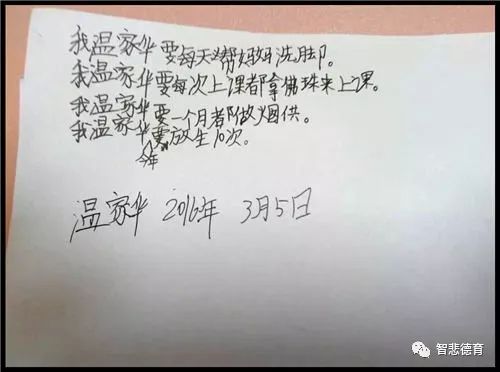 我温家华要每天帮妈妈洗脚。
我温家华要每次上课都拿佛珠来上课。
我温家华要一个月都做烟供。
我温家华要放生10次。
今年
温家华 2016年 3月5日
智悲德育